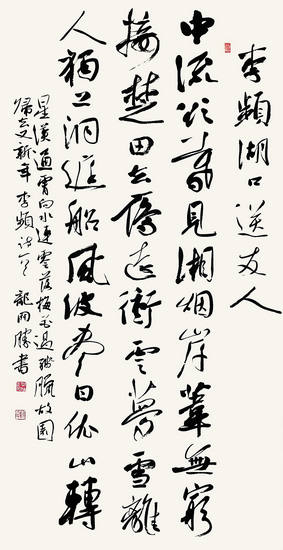 李頻湖口送友人
中流欲暮見湘烟岸葦無窮
接楚田去雁遠衝云夢雪離
人獨上洞庭船風波盡日依山轉
星漢通霄向水連零落梅花過殘臘故園
歸去又新年 李頻詩一首 龍開勝書